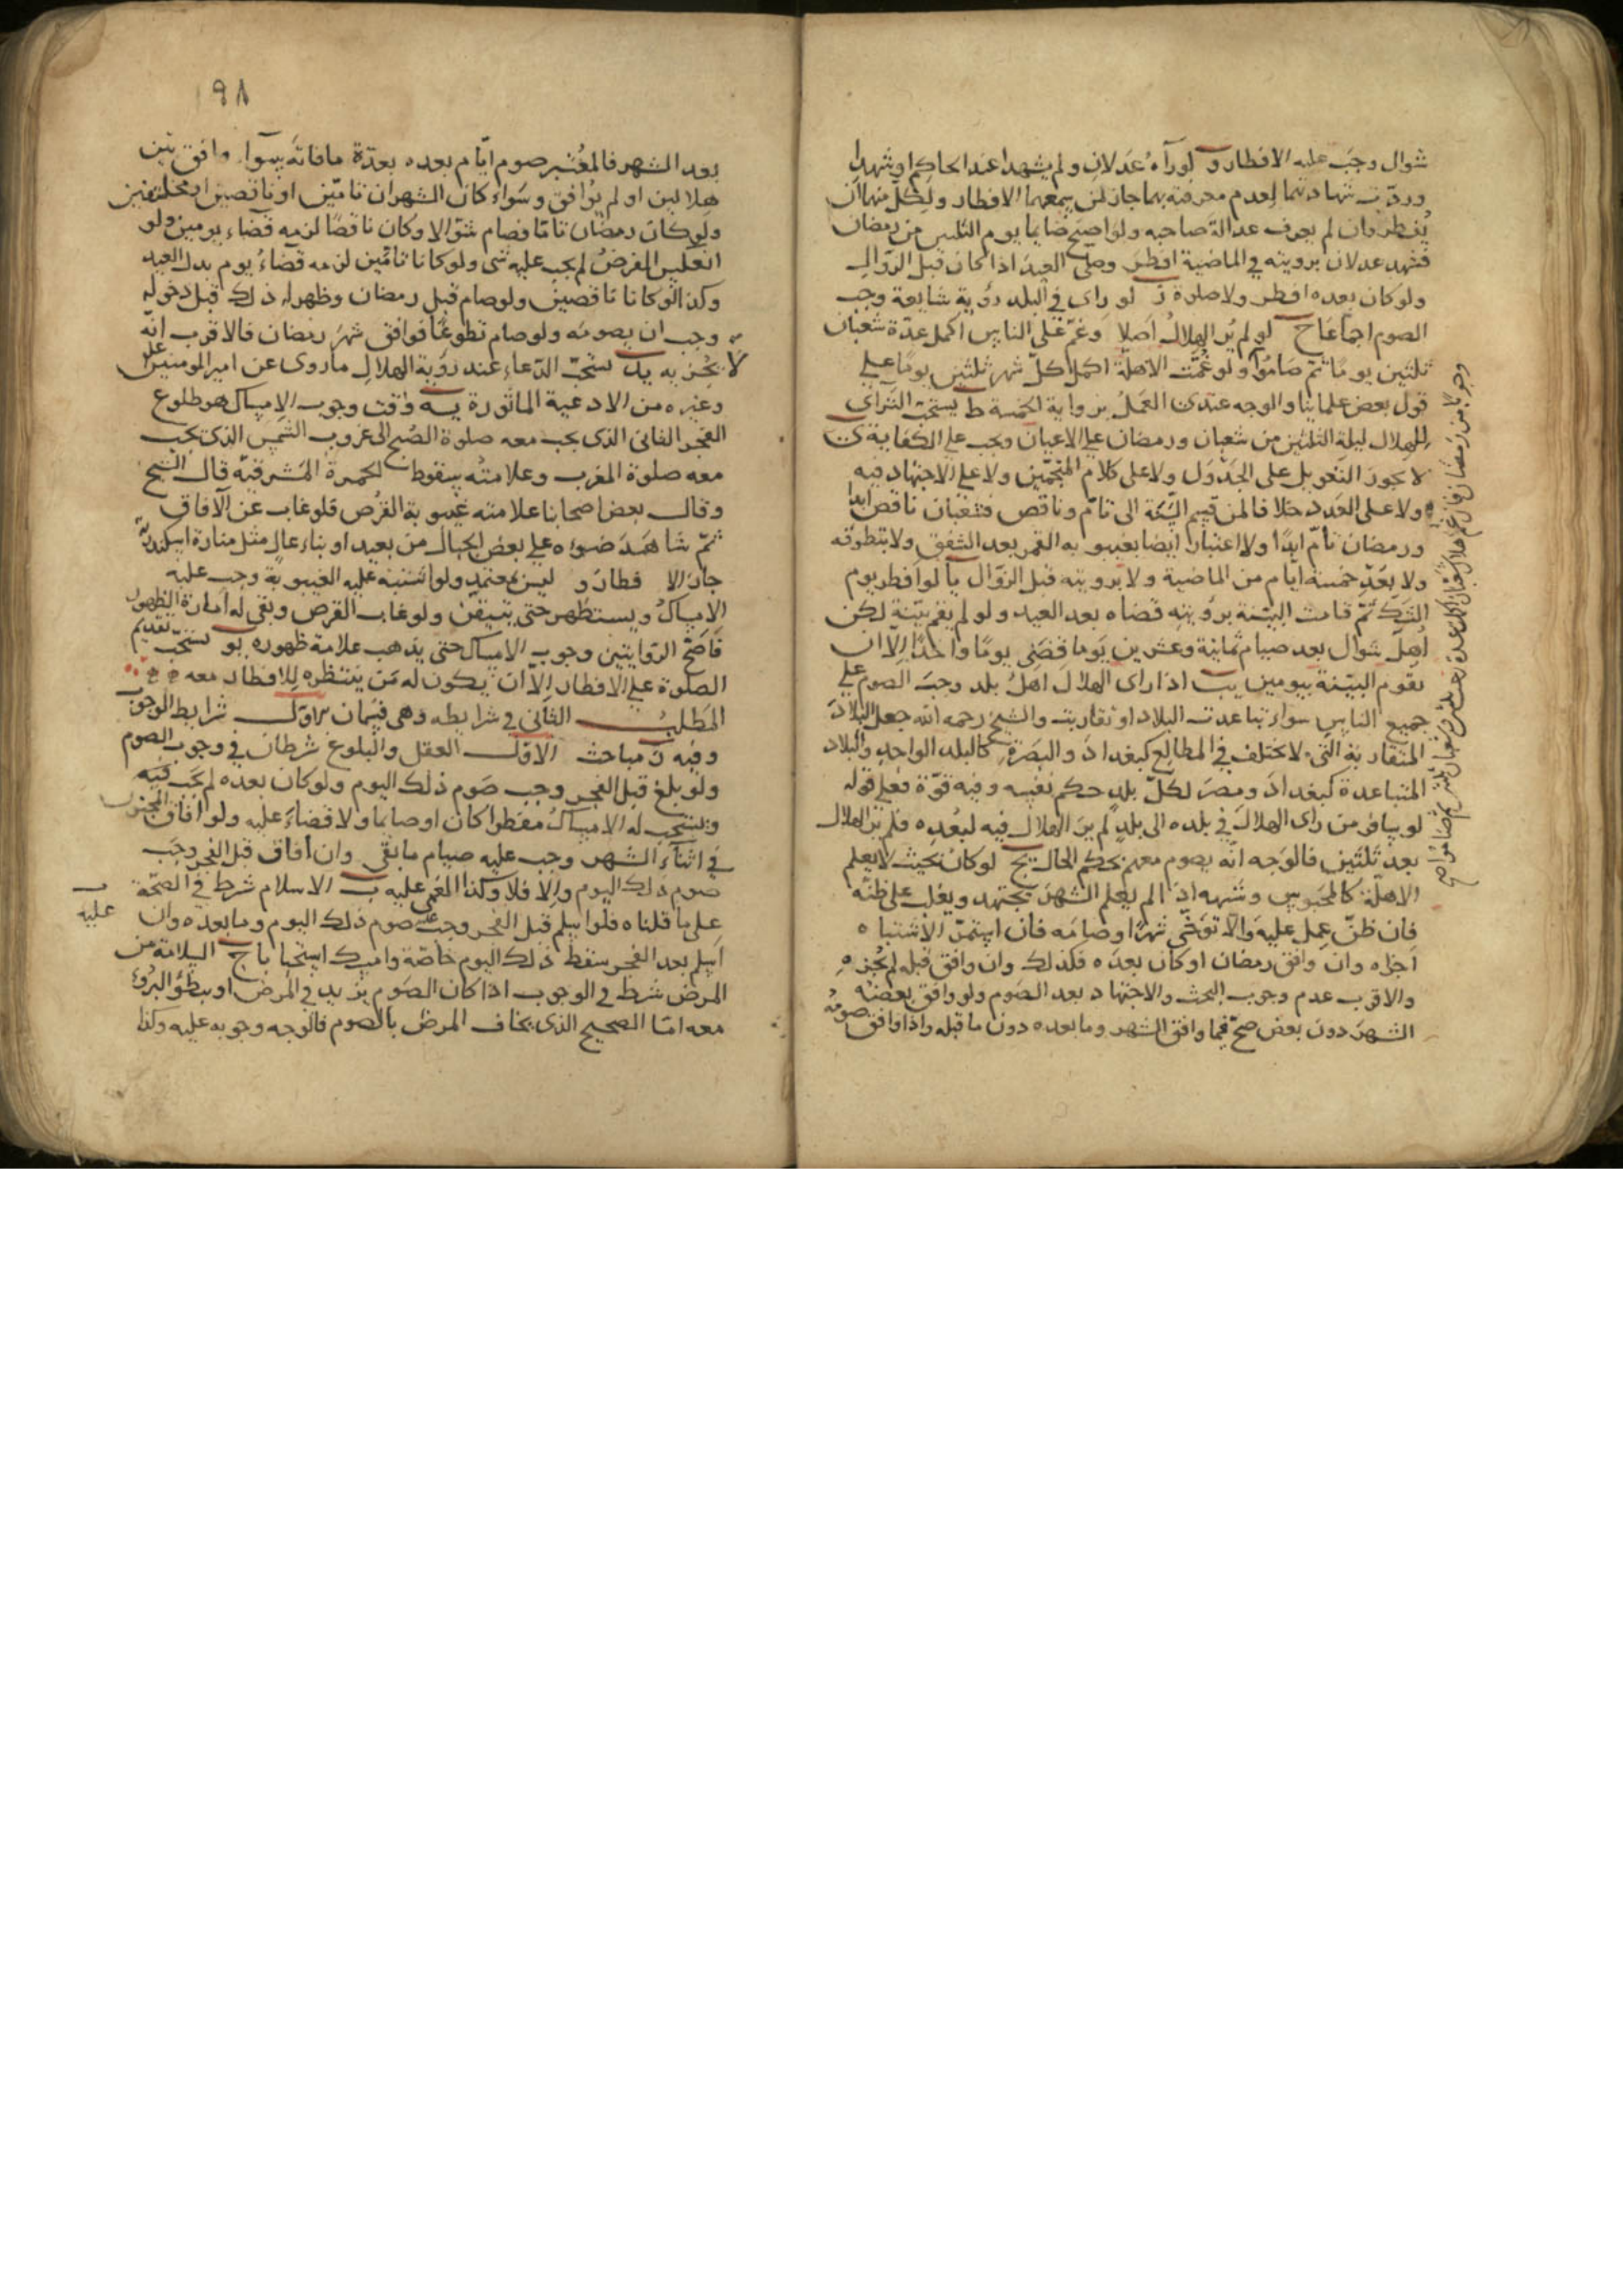 شوال وجب عليه الافطار و لو رآه عدلان ولم يشهدا عند الحاكم او شهدا
وردت شهادتهما لعدم معرفته بهما جاز لمن سمعهما الافطار ولكل منهما ان
يفطر وان لم يعرف عدالة صاحبه ولو اصبح صايما يوم الثلثين من رمضان
فشهد عدلان برويته في الماضية افطر وصلى العيد اذا كان قبل الزوال
ولو كان بعده افطر ولا صلوة ز لو راى في البلد رؤية شايعة وجب
الصوم اجماعا ح لو لم ير الهلال اصلا وغم على الناس اكمل عدة شعبان
ثلثين يوما ثم صاموا ولو غمت الاهلة اكمل كل شهر ثلثين يوما على
قول بعض علمائنا والوجه عندى العمل برواية الخمسة ط يستحب الترائى
للهلال ليلة الثلثين من شعبان ورمضان على الاعيان ويجب على الكفاية ى
لا يجوز التعويل على الجدول ولا على كلام المنجمين ولا على الاجتهاد فيه
ولا على العدد خلافا لمن قسم السنة الى تام وناقص فشعبان ناقص ابدا
ورمضان تام ابدا ولا اعتبار ايضا بغيبوبه القمر بعد الشفق ولا بتطوقه
ولا بعد خمسة ايام من الماضية ولا برويته قبل الزوال يا لو افطر يوم
الشك ثم قامت البينة برؤيته قضاه بعد العيد ولو لم يقم بينة لكن
اهل شوال بعد صيام ثمانية وعشرين يوما قضى يوما واحدا الا ان
يقوم البينة بيومين يب اذا راى الهلال اهل بلد وجب الصوم على
جميع الناس سواء تباعدت البلاد او تقاربت والشيخ رحمه الله جعل البلاد
المتقاربة التى لا يختلف في المطالع كبغداد والبصرة كالبلد الواحد والبلاد
المتباعدة كبغداد ومصر لكل بلد حكم نفسه وفيه قوة فعلى قوله
لو سافر من راى الهلال في بلده الى بلد لم ير الهلال فيه لبعده فلم ير الهلال
بعد ثلثين فالوجه انه يصوم معهم بحكم الحال يج لو كان بحيث لا يعلم
الاهلة كالمحبوس وشبهه اذا لم يعلم الشهر يجتهد ويغلب على ظنه
فان ظن عمل عليه والا توخى شهرا وصامه فان استمر الاشتباه
اجزاه وان وافق رمضان او كان بعده فكذلك وان وافق قبله لم يجزه
والاقرب عدم وجوب البحث والاجتهاد بعد الصوم ولو وافق بعضه
الشهر دون بعض صح فيما وافق الشهر وما بعده دون ما قبله واذا وافق صومه
٩٨
بعد الشهر فالمعتبر صوم ايام بعده بعدة ما فاته سوا وافق بين
هلالين او لم يوافق وسواء كان الشهران تامين او ناقصين او مختلفين
ولو كان رمضان تاما فصام شوالا وكان ناقصا لزمه قضاء يومين ولو
انعكس الفرض لم يجب عليه شى ولو كانا تامين لزمه قضاء يوم بدل العيد
وكذا لو كانا ناقصين ولو صام قبل رمضان وظهر له ذلك قبل دخوله
وجب ان يصومه ولو صام تطوعا فوافق شهر رمضان فالاقرب انه
لا يجزيه يد يستحب الدعاء عند رؤية الهلال ما روى عن امير المومنين عليه
وغيره من الادعية الماثورة يه وقت وجوب الامساك هو طلوع
الفجر الثانى الذى يجب معه صلوة الصبح الى غروب الشمس الذى يجب
معه صلوة المغرب وعلامته سقوط الحمرة المشرقية قال الشيخ
وقال بعض اصحابنا علامته غيبوبة القرص فلو غاب عن الافاق
ثم شاهد ضوءه على بعض الجبال من بعيد او بناء عال مثل منارة اسكندرية
جاز الافطار و ليس بمعتمد ولو اشتبه عليه الغيبوبة وجب عليه
الامساك ويستظهر حتى يتيقن ولو غاب القرص وبقى له امارة الظهور
فاصح الروايتين وجوب الامساك حتى يذهب علامة ظهوره يو يستحب تقديم
الصلوة على الافطار الا ان يكون له من ينتظره للافطار معه
المطلب الثانى في شرايطه وهى قسمان الاول شرايط الوجوب
وفيه مباحث الاول العقل والبلوغ شرطان في وجوب الصوم
ولو بلغ قبل الفجر وجب صوم ذلك اليوم ولو كان بعده لم يجب فيه
ويستحب له الامساك مفطرا كان او صايما ولا قضاء عليه ولو افاق المجنون
في اثناء الشهر وجب عليه صيام ما بقى وان افاق قبل الفجر وجب
صوم ذلك اليوم والا فلا وكذا المغمى عليه ب الاسلام شرط في الصحة
على ما قلناه فلو اسلم قبل الفجر وجب عليه صوم ذلك اليوم وما بعده وان
عليه
اسلم بعد الفجر سقط ذلك اليوم خاصة وامسك استحبابا ج السلامة من
المرض شرط في الوجوب اذا كان الصوم يزيد في المرض او يبطؤ البرؤ
معه اما الصحيح الذى يخاف المرض بالصوم فالوجه وجوبه عليه وكذا